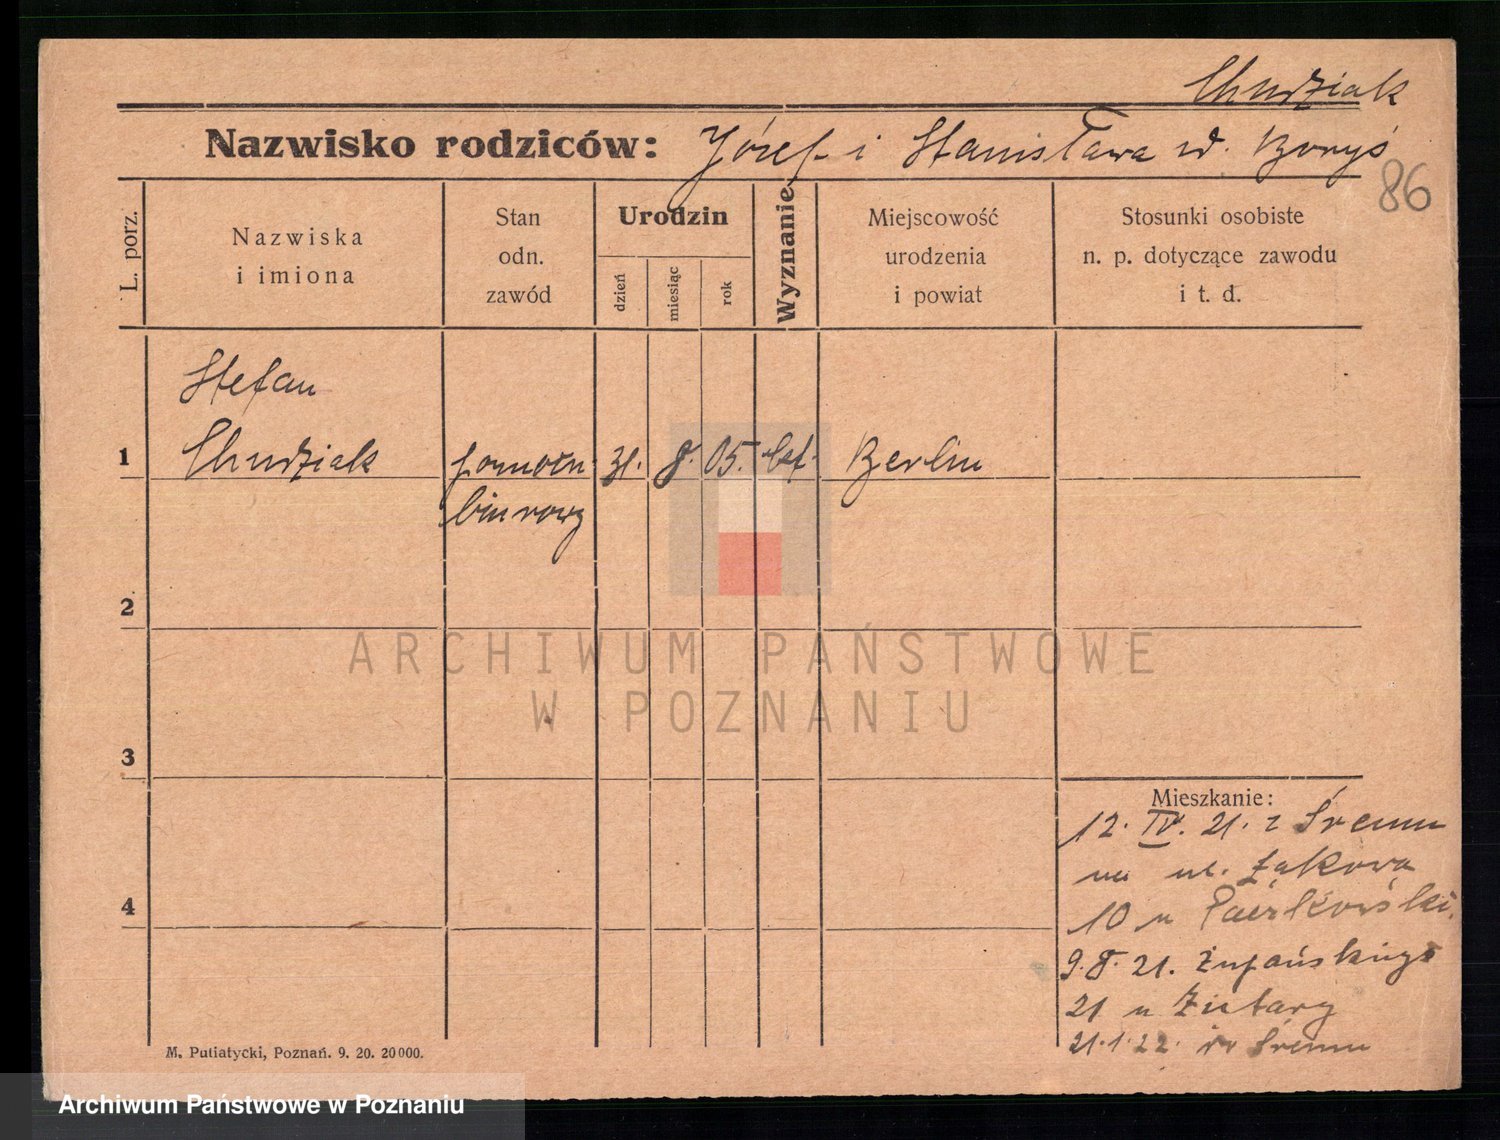 Chudziak
Nazwisko rodziców: Józef i Stanisława d. Boryś
86
L. porz.
Nazwiska
i imiona
Stan
odn.
zawód
Urodzin
dzień
miesiąc
rok
Wyznanie
Miejscowość
urodzenia
i powiat
Stosunki osobiste
n. p. dotyczące zawodu
i t. d.
Stefan
1 Chudziak pomocn. 31. 8. 05. kat. Berlin
biurowy
2
ARCHIWUM PAŃSTWOWE
W POZNANIU
3
Mieszkanie:
12. IV. 21. z Śremu
na ul. Łąkowa
4
10 u
9.8.21. Żupańskiego
21 u
21.1.22. Śremu
M. Putiatycki, Poznań. 9. 20. 20000.
Archiwum Państwowe w Poznaniu